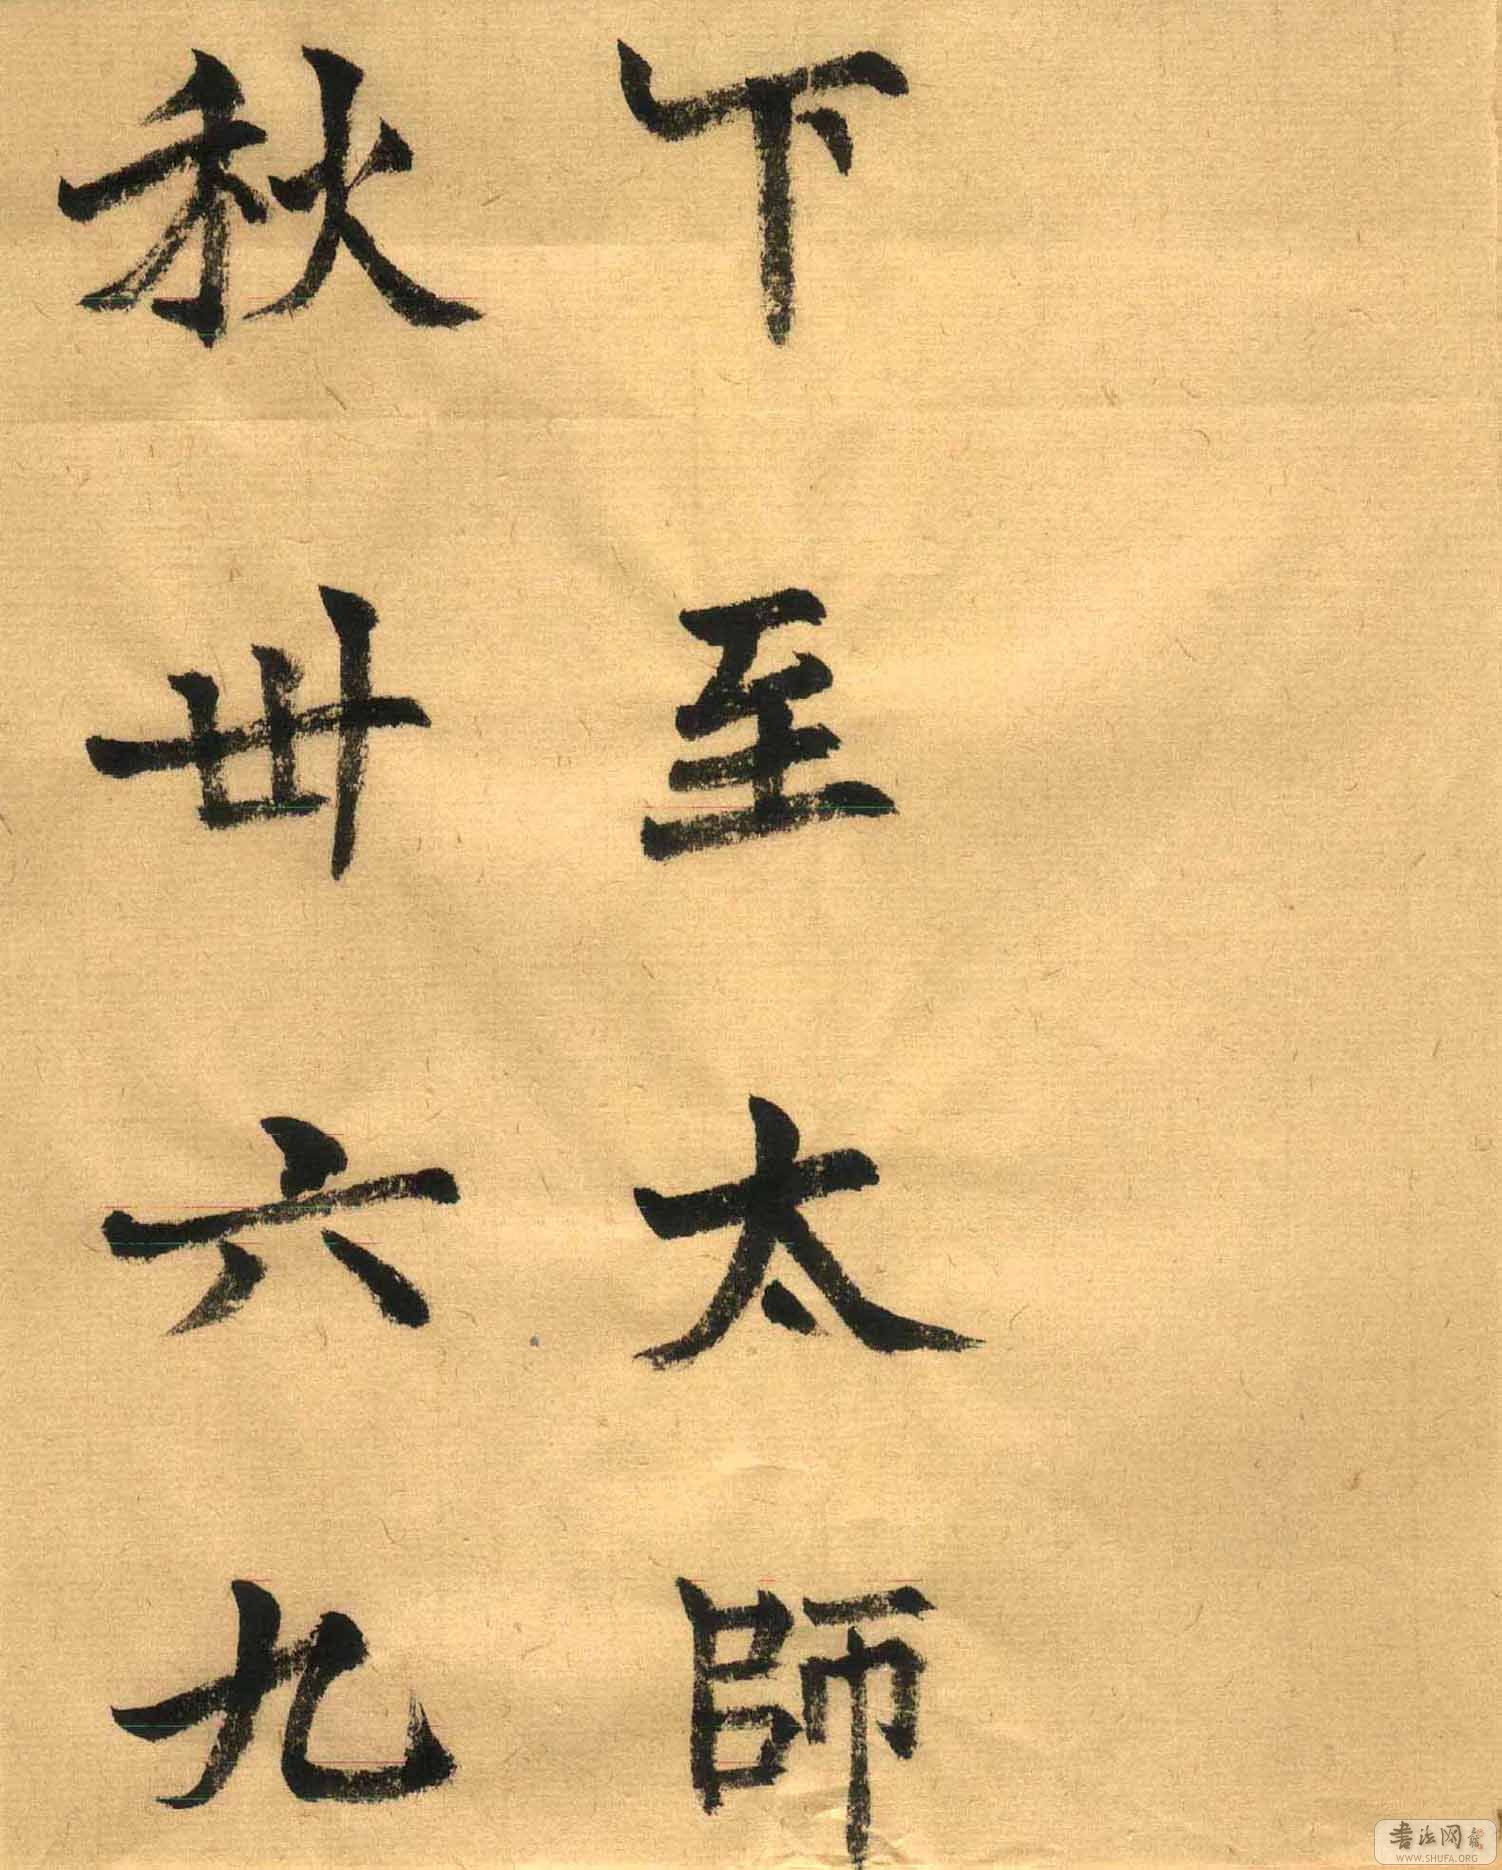 下至太師
秋卅六九
书法网
WWW.SHUFA.ORG